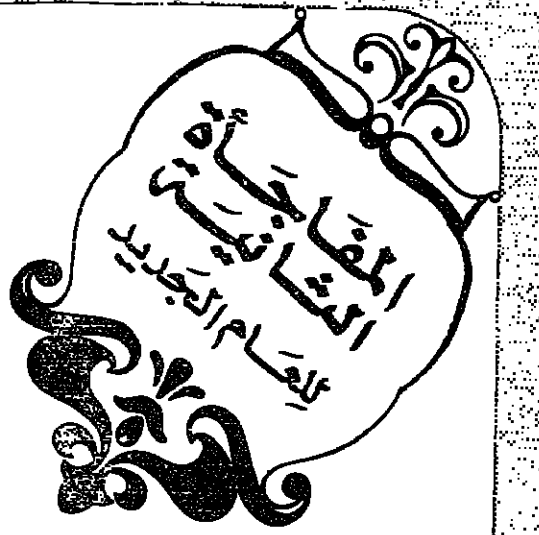 المفَاجَأة
الثَانيَة
للعَام الجَديد